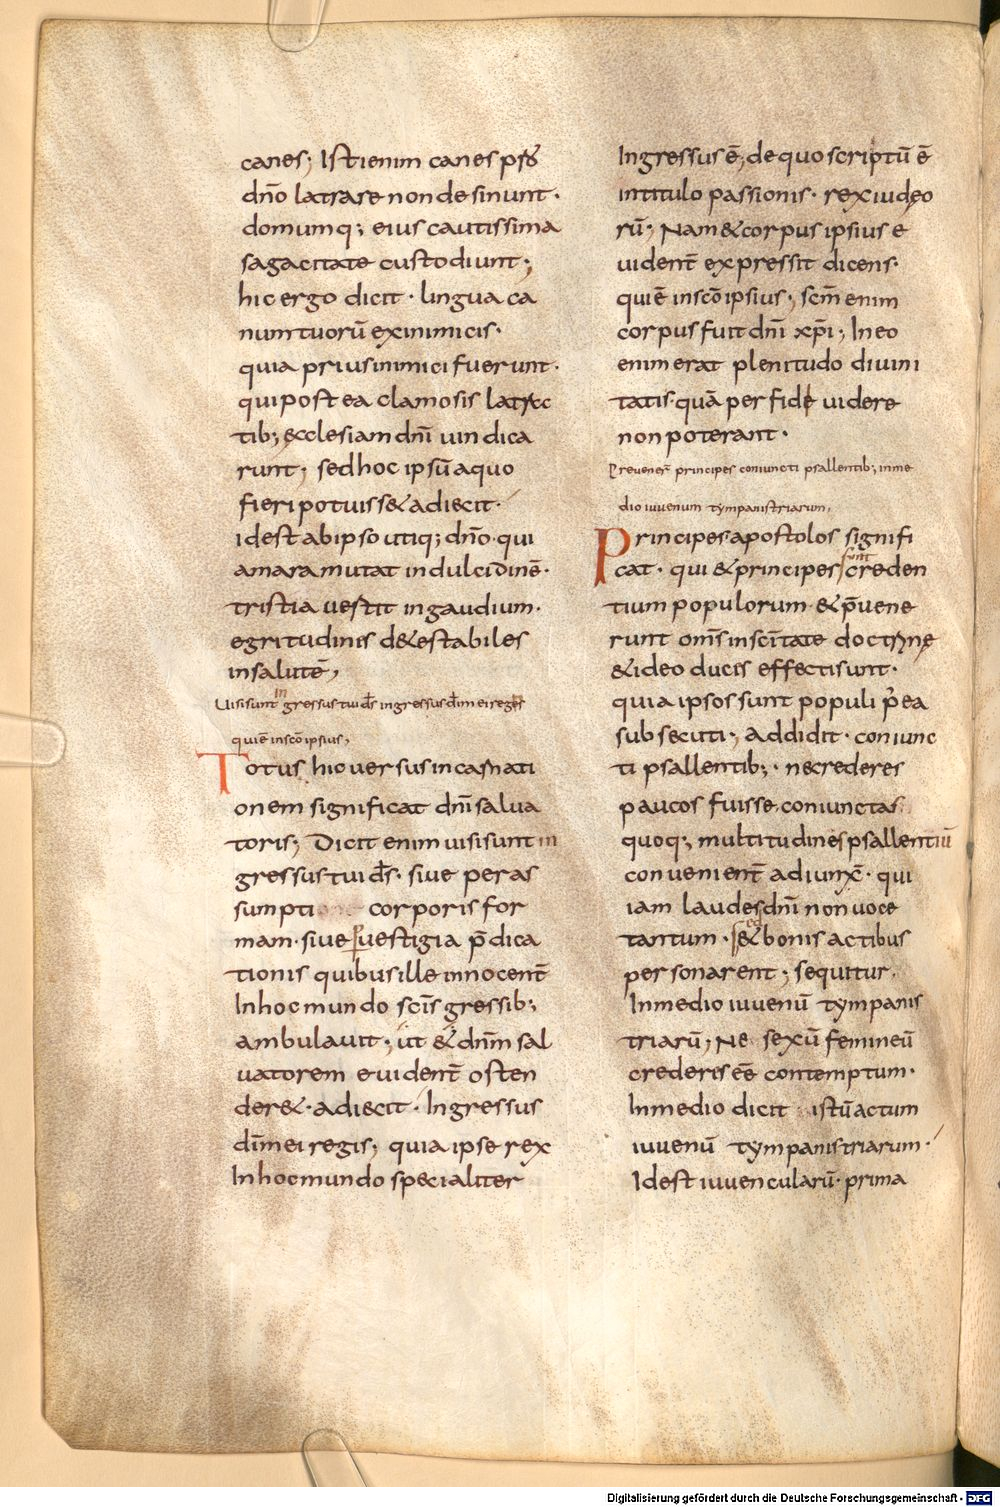 canes; Isti enim canes p̄s̄
dn̄o latrare non desinunt·
domumq; eius cautissima
sagacitate custodiunt;
hic ergo dicit· lingua ca
num tuorū ex inimicis·
quia prius inimici fuerunt·
qui postea clamosis latra
tib; ecclesiam dn̄i uindica
runt; sed hoc ipsū a quo
fieri potuisset adiecit·
id est ab ipso utiq; dn̄o· qui
amara mutat in dulcidinē·
tristia uestit in gaudium·
egritudinis detestabiles
in salutē;
Uisi sunt ingressus tui d̄s ingressus d̄i mei regis
qui ē in sc̄o ipsius;
Totus hic uersus incarnati
onem significat dn̄i salua
toris; Dicit enim uisi sunt in
gressus tui d̄s· siue per as
sumpti corporis for
mam· siue p uestigia p̄dica
tionis quibus ille innocent̄
In hoc mundo sc̄is gressib;
ambulauit; ut & dn̄m sal
uatorem euident̄ osten
deret· adiecit· Ingressus
dī mei regis; quia ipse rex
In hoc mundo specialiter
Ingressus ē; de quo scriptū ē
in titulo passionis· rex iudeo
rū; Nam & corpus ipsius e
uident̄ expressit dicens·
qui ē in sc̄o ipsius; sc̄m enim
corpus fuit dn̄i xp̄i; In eo
enim erat plenitudo diuini
tatis quā per fidē uidere
non poterant·
Preuener̄ principes coniuncti psallentib; in me
dio iuuenum tympanistriarum;
Principes apostolos signifi
cat· qui & principes sunt creden
tium populorum· & p̄uene
runt om̄s in sc̄itate doctrine
& ideo ducis effecti sunt·
quia ipsos sunt populi p̄ea
subsecuti; addidit· coniunc
ti psallentib;· ne crederes
paucos fuisse, coniunctas
quoq; multitudines psallentiū
conuenient̄ adiunx̄· qui
iam laudes dn̄i non uoce
tantum· sed & bonis actibus
personarent; sequitur·
In medio iuuenū tympanis
triarū; Ne sexū femineū
crederis ēē contemptum·
In medio dicit istū actum
iuuenū tympanistriarum·
Id est iuuencularū· prima
Digitalisierung gefördert durch die Deutsche Forschungsgemeinschaft - DFG